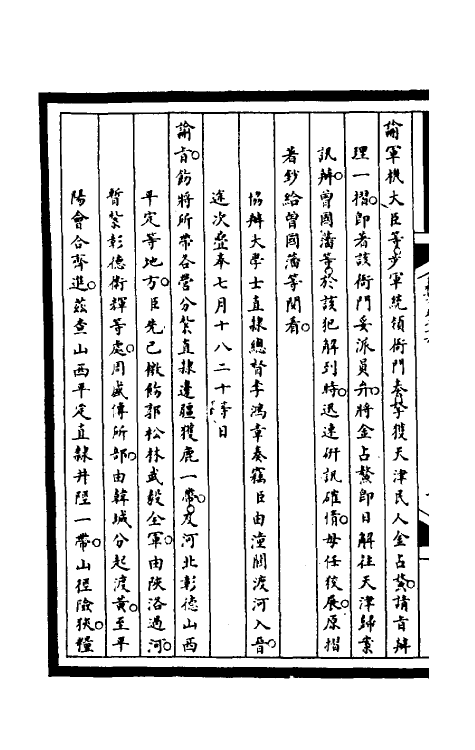 諭軍機大臣等。步軍統領衙門奏拏獲天津民人金占鰲。請旨辦
理一摺。即著該衙門妥派員弁。將金占鰲即日解往天津歸案
訊辦。曾國藩等於該犯解到時。迅速研訊確情。毋任狡展。原摺
著鈔給曾國藩等閱看。
協辦大學士直隸總督李鴻章奏竊臣由潼關渡河入晉。
途次叠奉七月十八二十等日
諭旨。飭將所帶各營分紮直隸邊疆獲鹿一帶。及河北彰德山西
平定等地方。臣先已檄飭郭松林盛毅全軍。由陝洛過河。
暫紮彰德衛輝等處。周盛傳所部。由韓城分起渡黃。至平
陽會合齊進。茲查山西平定直隸井陘一帶。山徑險狹。糧